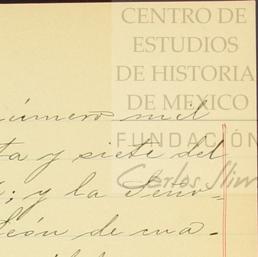 CENTRO DE
ESTUDIOS
DE HISTORIA
DE MEXICO
FUNDACIÓN
Carlos Slim
números mil
ta y siete del
; y la Seño-
León de cua-